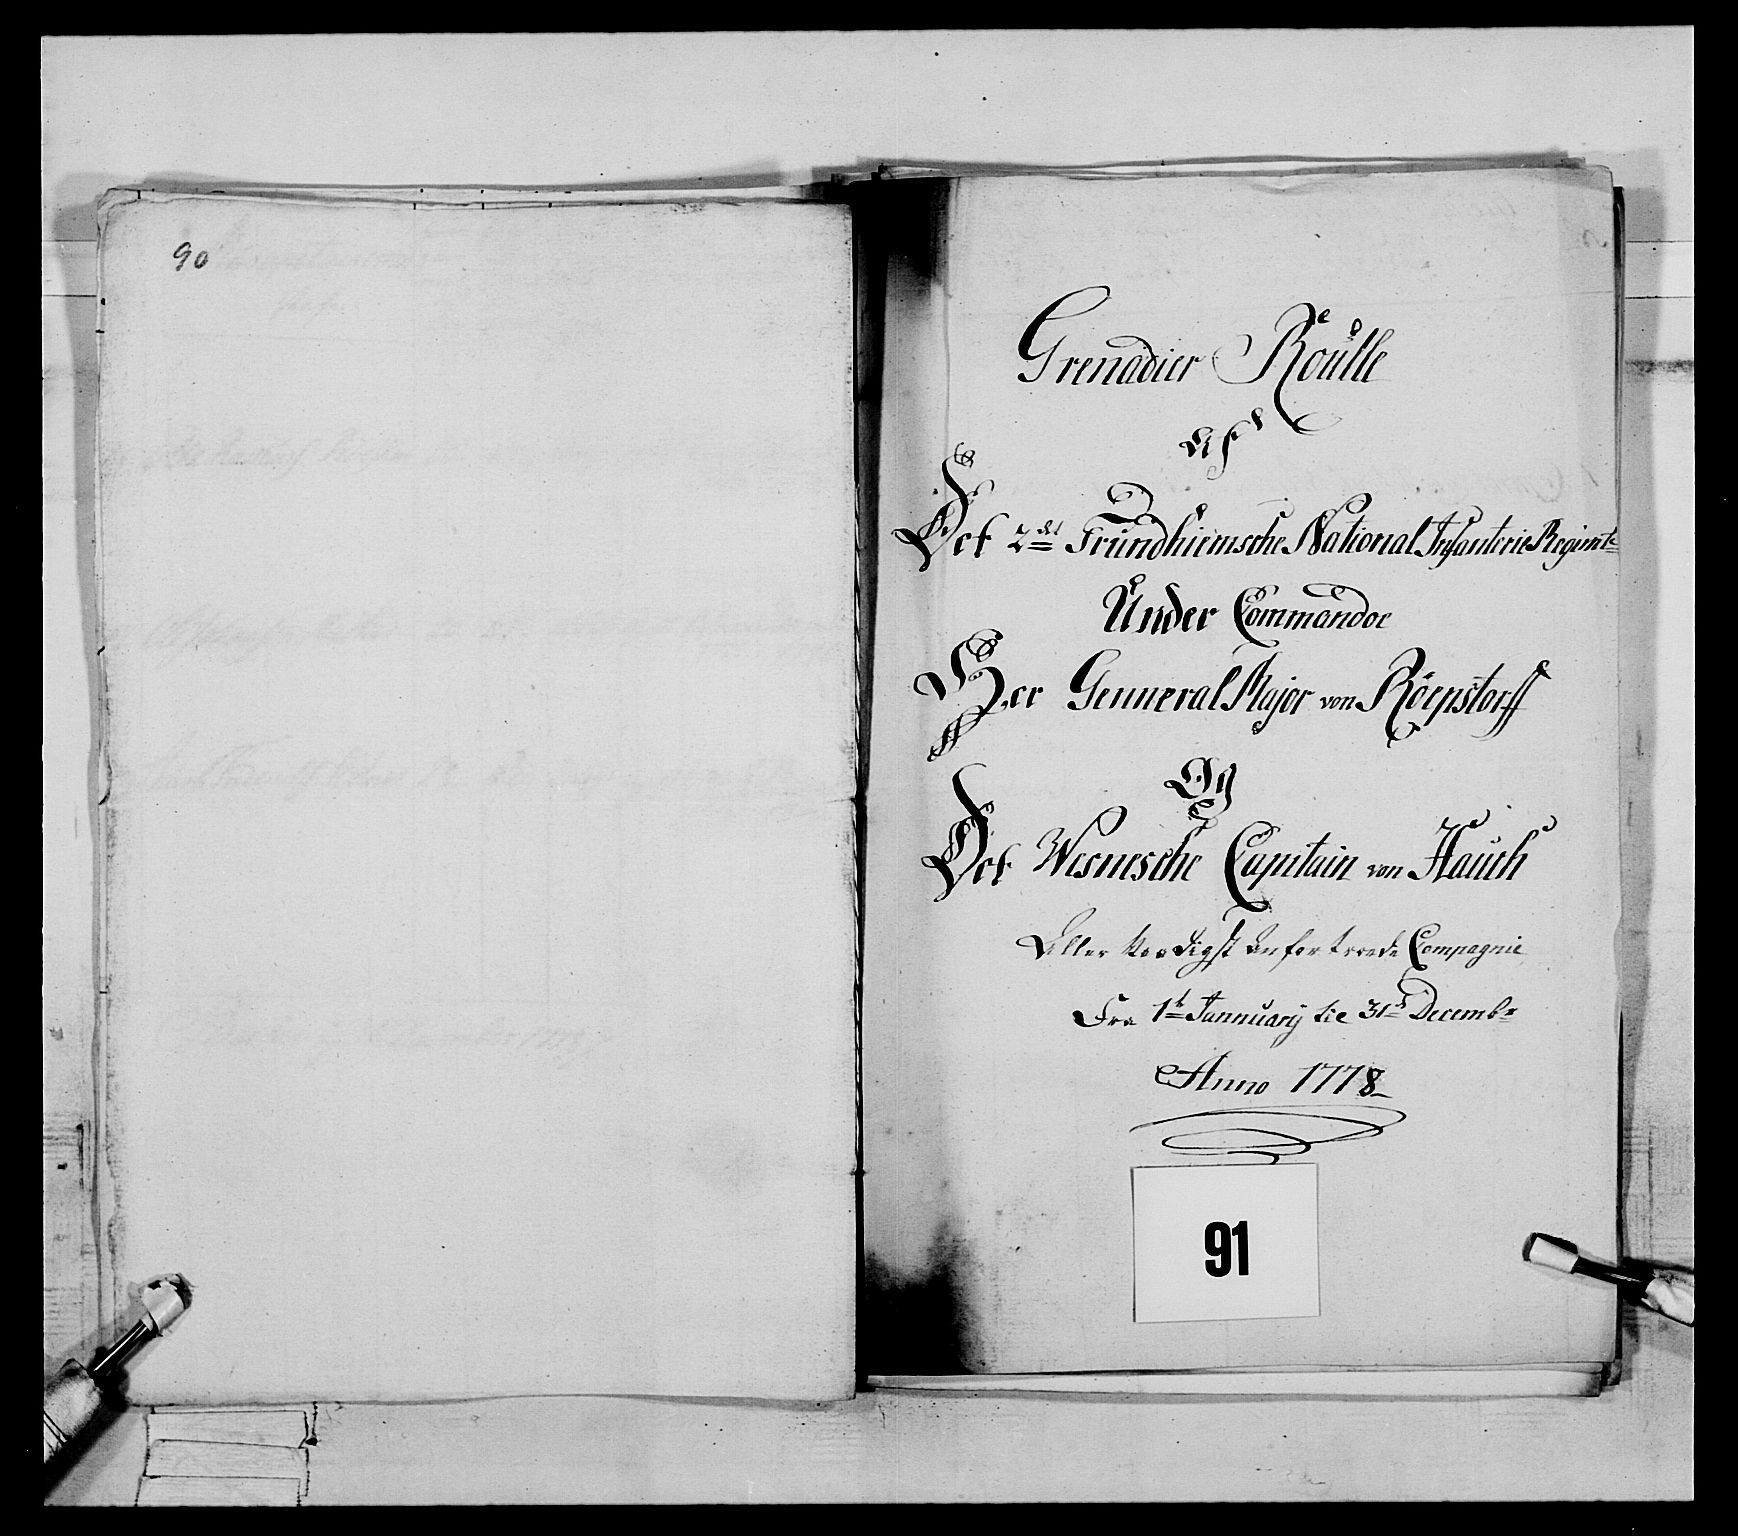 90
Grenadier Roulle
Af
Det 2det Trundhiemsche National Infanterie Regimt:
Under Commando
Her Genneral Major von Röepstorff
Og
Det Wesnesche Capitain von Hauch
Aller Naadigst anfortroede Compagnie
Fra 1te Jannuarÿ til 31te Decembr
Anno 1778
91